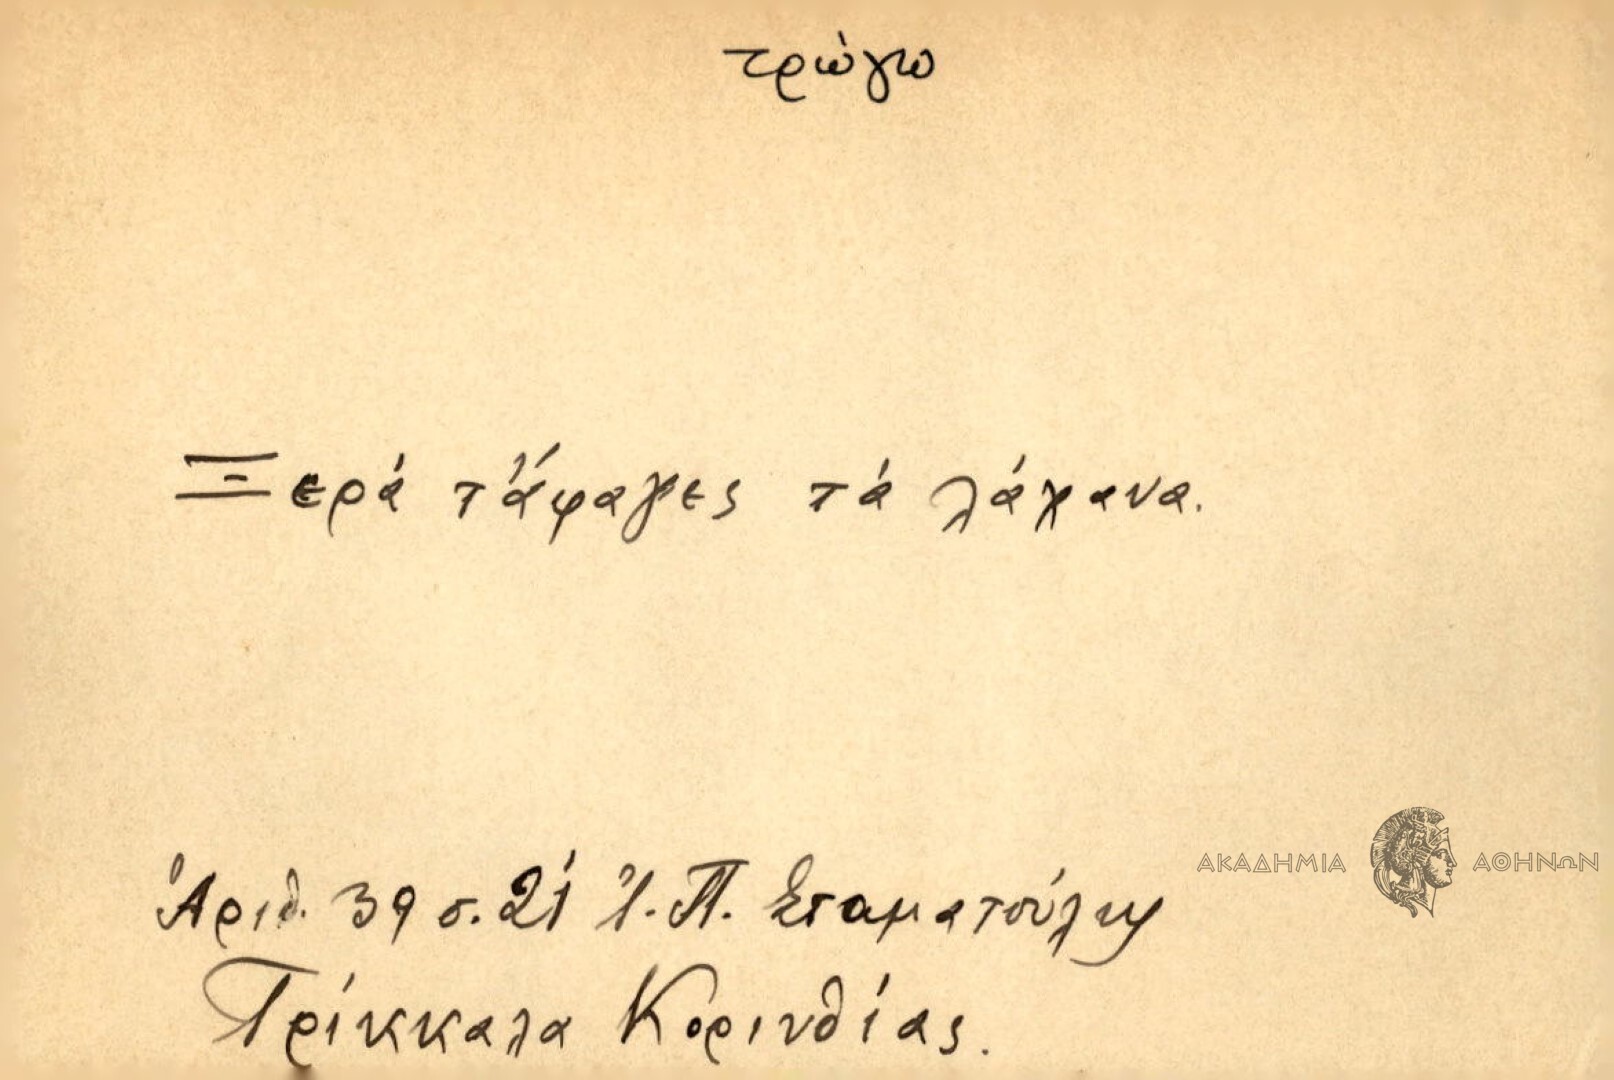 τρώγω
Ξερά τἄφαγες τά λάχανα.
Ἀριθ. 39 σ. 21 Ἰ. Π. Σταματούλη
ΑΚΑΔΗΜΙΑ ΑΘΗΝΩΝ
Τρίκκαλα Κορινθίας.